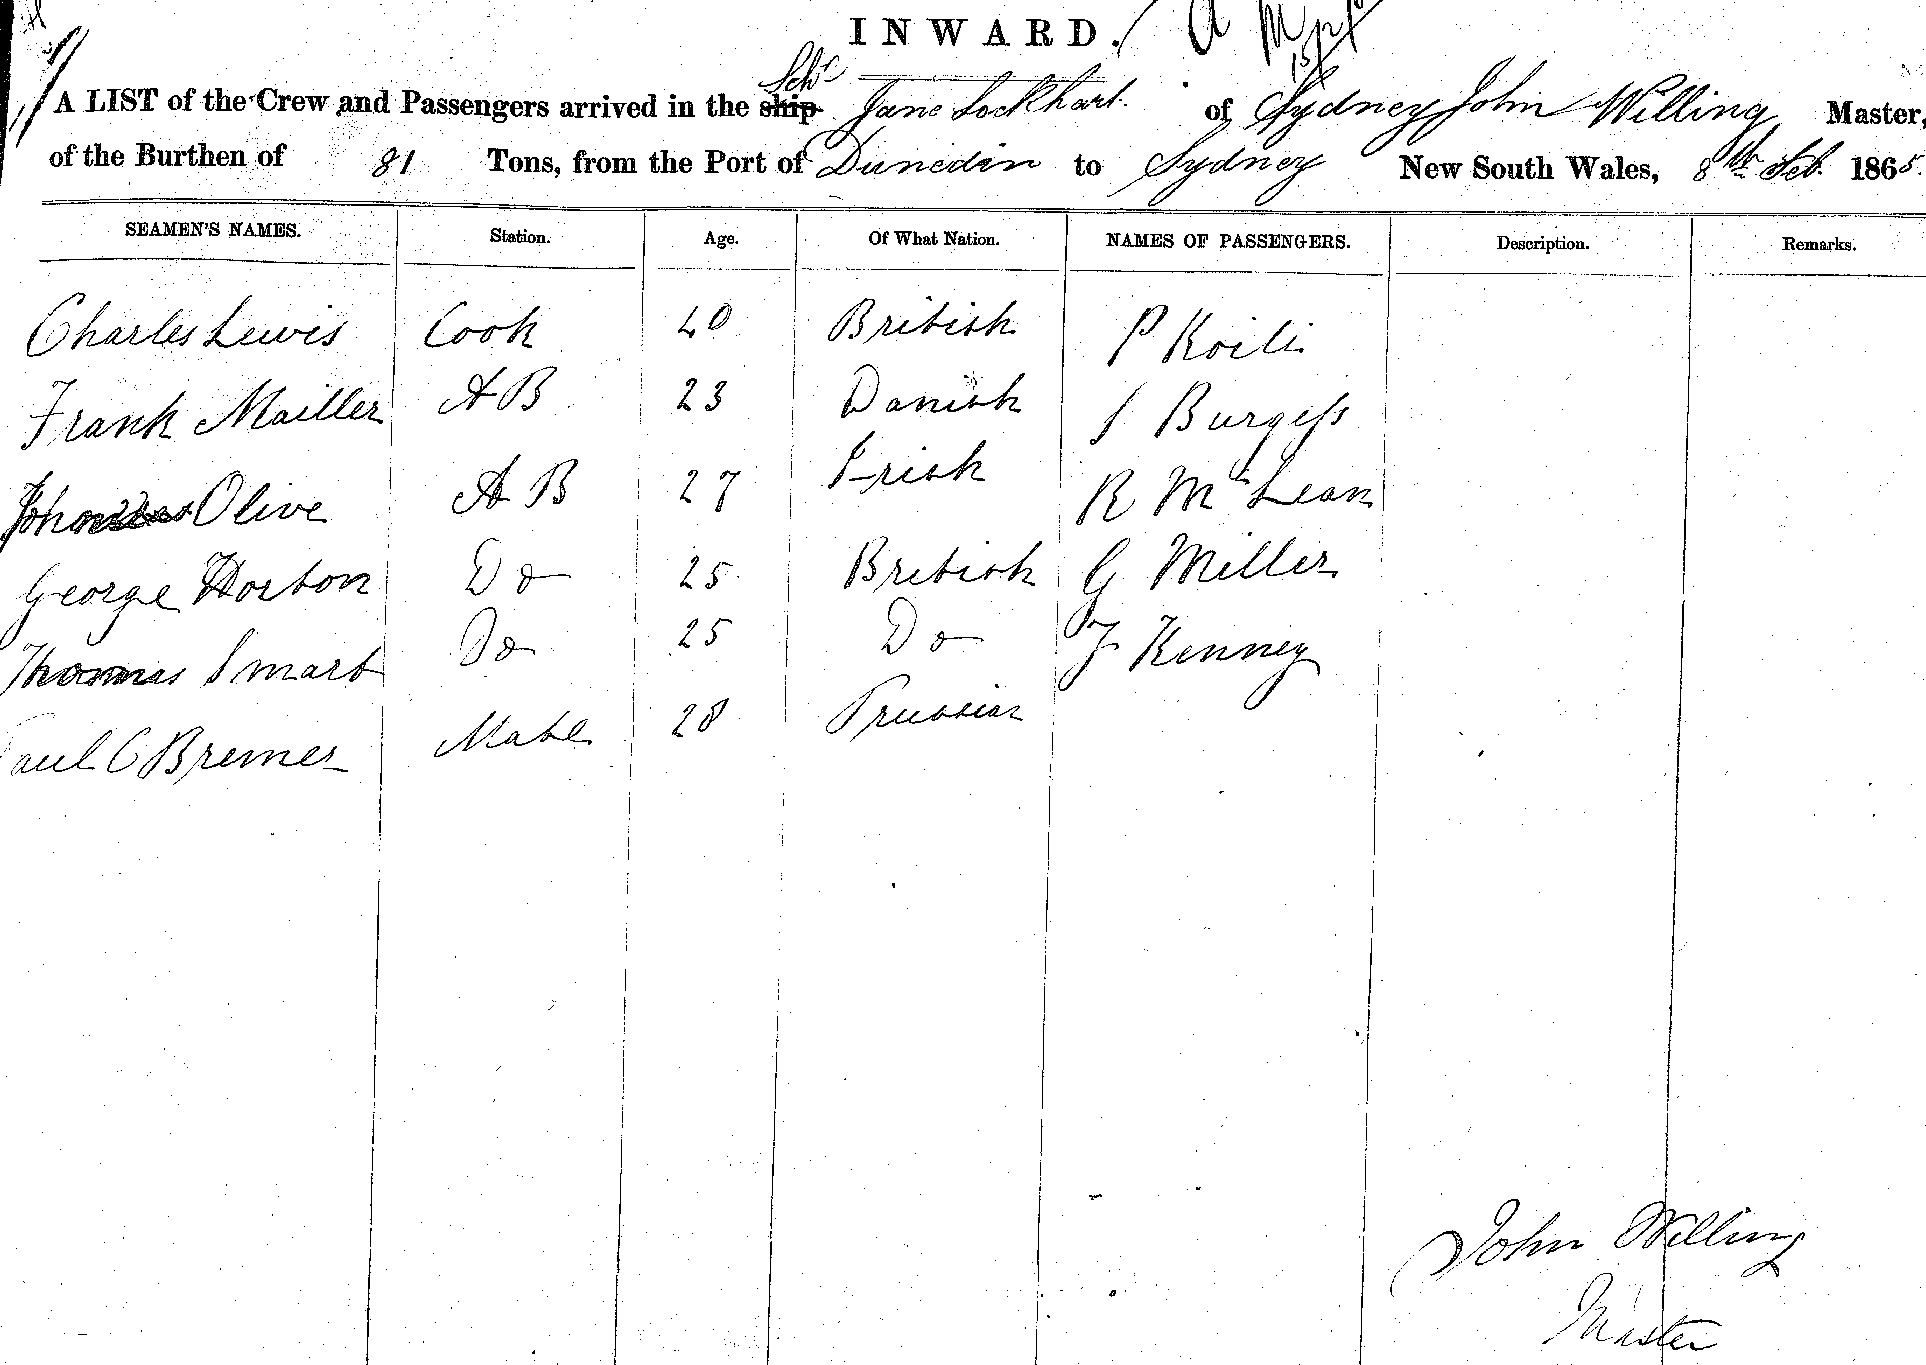 INWARD.
Schr
A LIST of the Crew and Passengers arrived in the ship Jane Lockhart of Sydney John Willing Master,
of the Burthen of 81 Tons, from the Port of Dunedin to Sydney New South Wales, 8th Feb. 1865.
SEAMEN'S NAMES. Station. Age. Of What Nation. NAMES OF PASSENGERS. Description. Remarks.
Charles Lewis Cook 40 British P
Frank Mailler A B 23 Danish S Burgess
John Olive A B 27 Irish R McLean
George Horton Do 25 British G Miller
Thomas Smart Do 25 Do J Kenney
Paul C Bremer Mate 28 Prussian
John Willing
Master